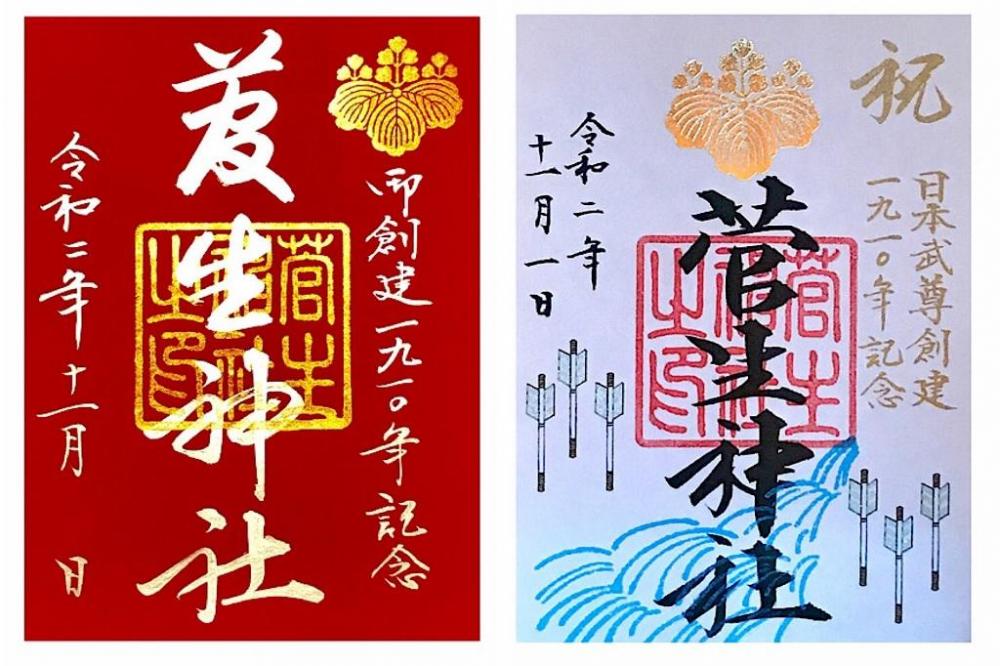 御創建一九一〇年記念
菅生神社
菅生
神社
之印
令和二年十一月 日
祝
日本武尊創建
一九一〇年記念
菅生神社
菅生
神社
之印
令和二年
十一月一日